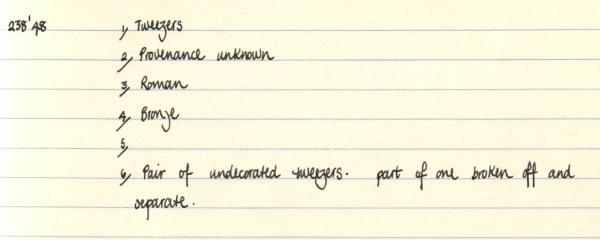 238'48 1, Tweezers
2, Provenance unknown
3, Roman
4, Bronze
5,
6, Pair of undecorated tweezers. part of one broken off and
separate.